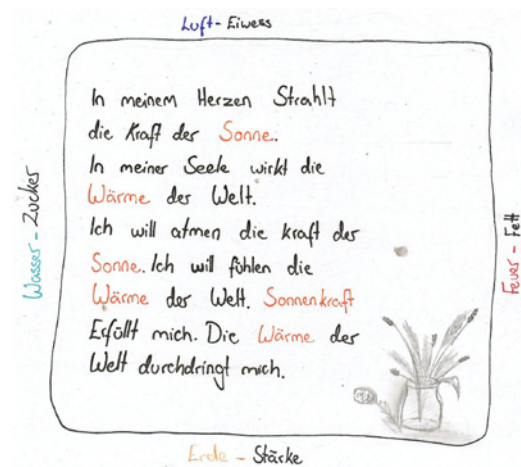 Luft - Eiwess
In meinem Herzen Strahlt
die Kraft der Sonne.
In meiner Seele wirkt die
Wärme der Welt.
Ich will atmen die kraft der
Sonne. Ich will fühlen die
Wärme der Welt. Sonnenkraft
Erfüllt mich. Die Wärme der
Welt durchdringt mich.
Wasser - Zucker
Feuer - Fett
Erde - Stärke